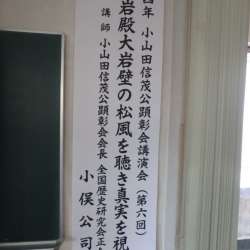 四年 小山田信茂公顕彰会講演会（第六回）
岩殿大岩壁の松風を聴き真実を視
講師 小山田信茂公顕彰会会長 全国歴史研究会正
小俣公司